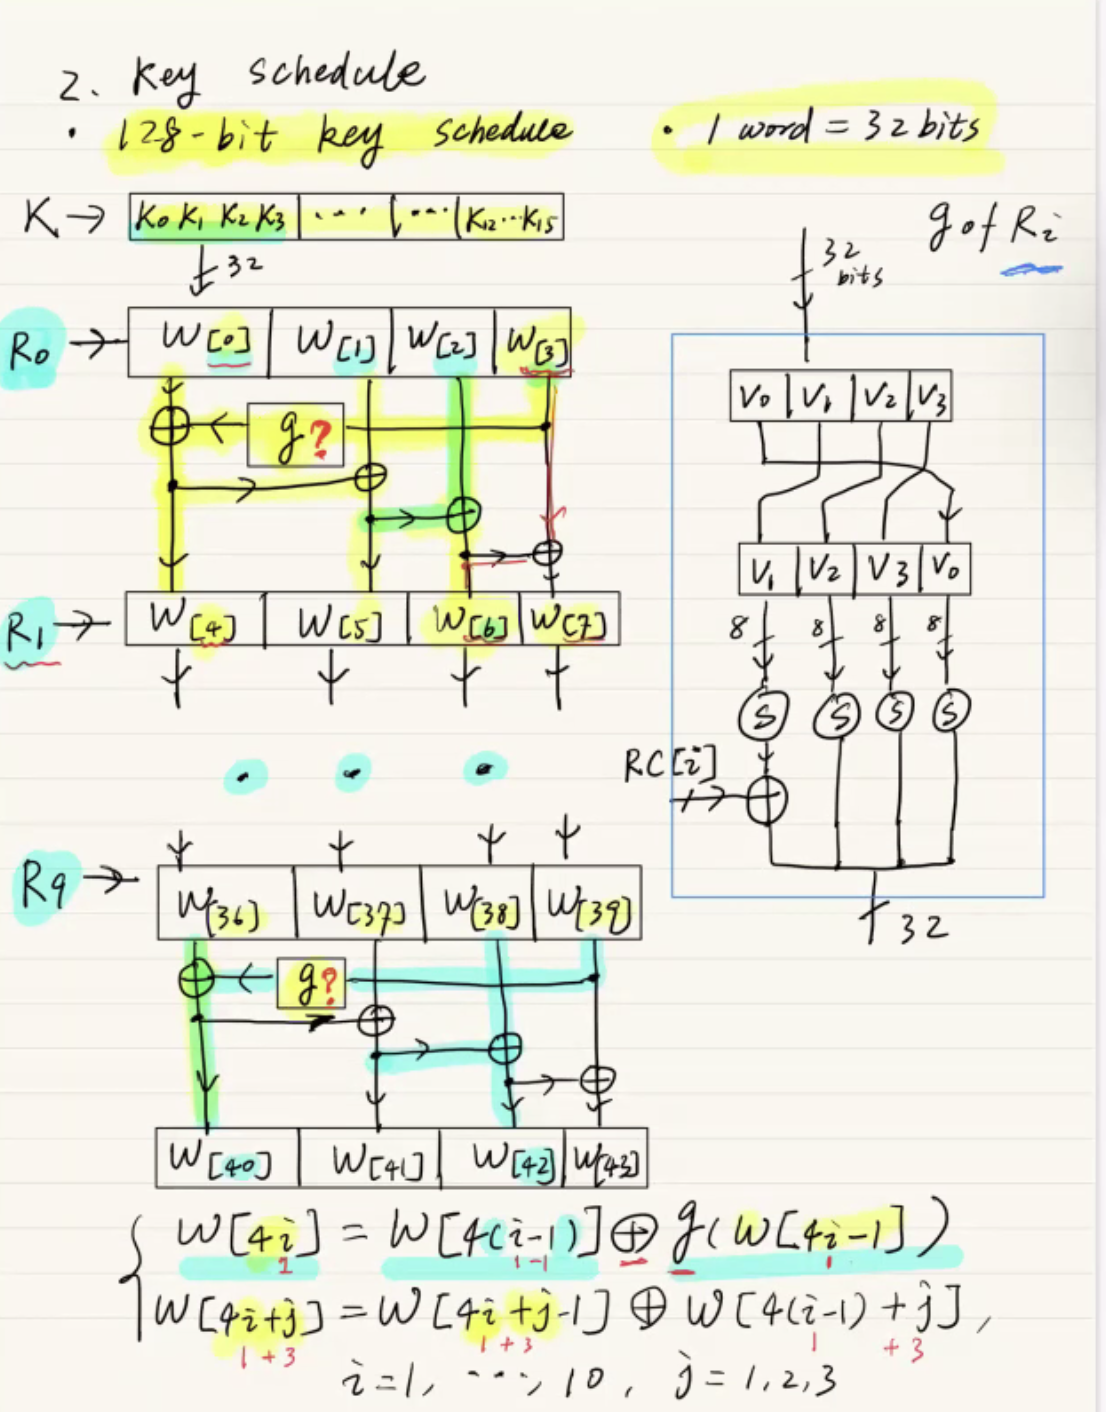 2. Key schedule
• 128-bit key schedule
• 1 word = 32 bits
K → K0 K1 K2 K3 | ... | ... | K12...K15
32
g of Ri
32 bits
R0 → W[0] | W[1] | W[2] | W[3]
g?
R1 → W[4] | W[5] | W[6] | W[7]
V0 | V1 | V2 | V3
V1 | V2 | V3 | V0
8 8 8 8
S S S S
RC[i]
32
• • •
R9 → W[36] | W[37] | W[38] | W[39]
g?
W[40] | W[41] | W[42] | W[43]
W[4i] = W[4(i-1)] ⊕ g(W[4i-1])
1 1-1 1
W[4i+j] = W[4i+j-1] ⊕ W[4(i-1)+j],
1+3 1+3 1 +3
i=1, ..., 10, j=1,2,3